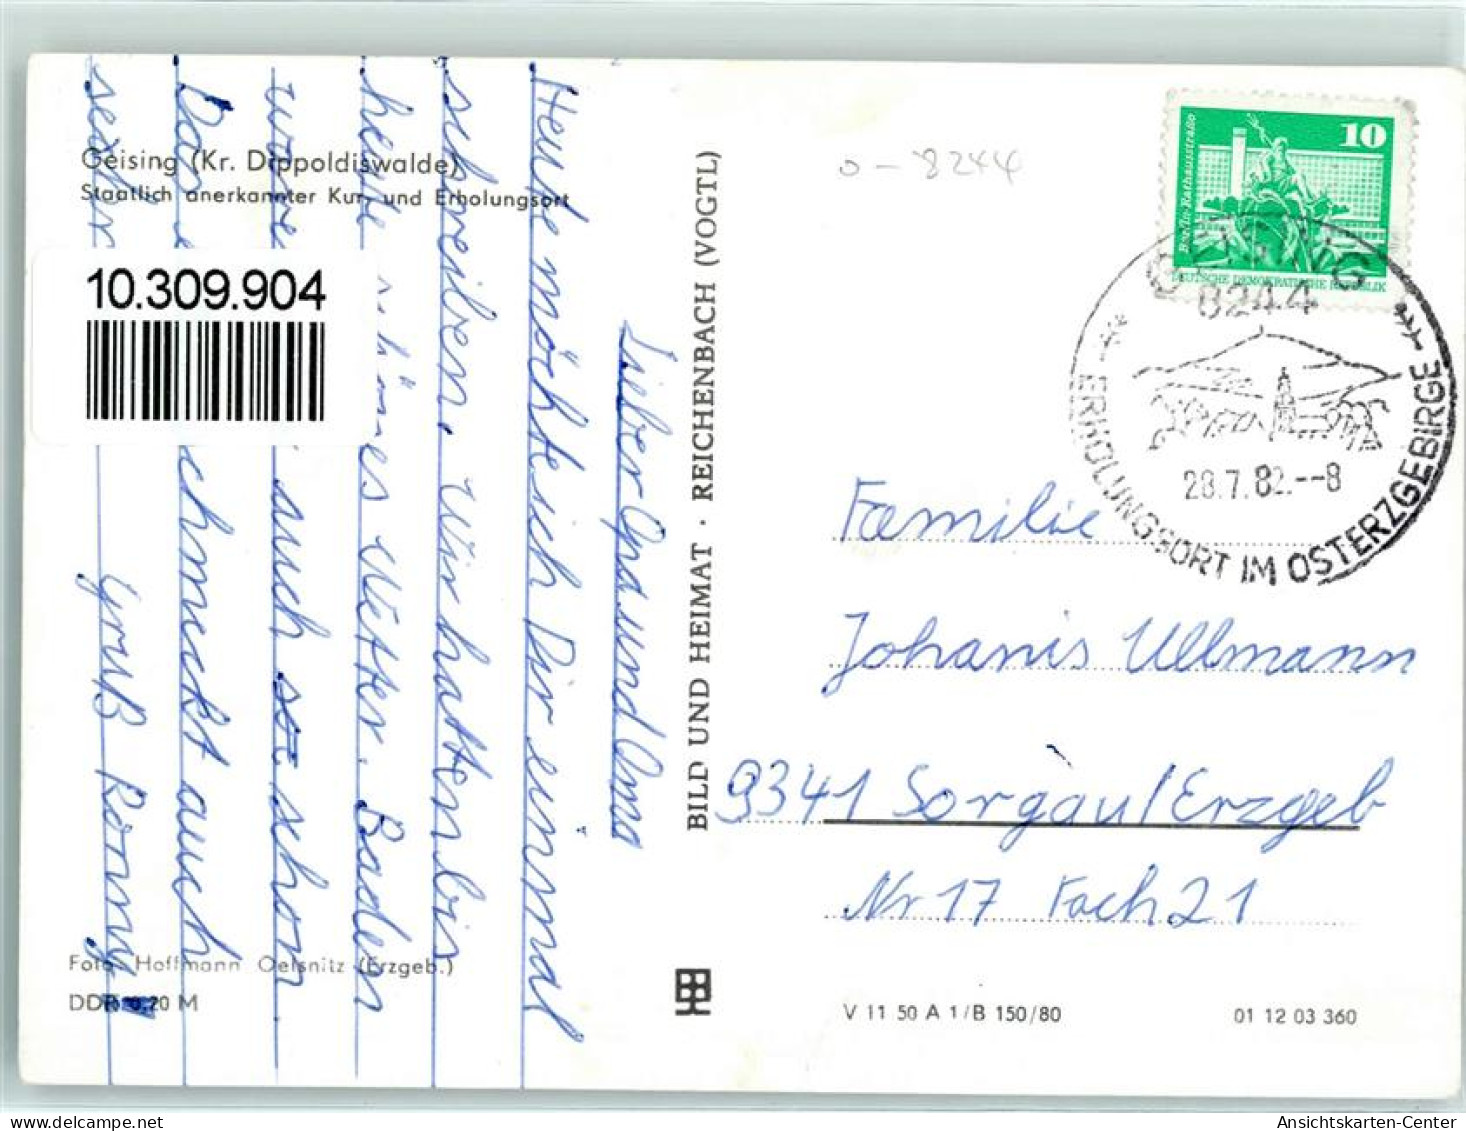 Geising (Kr. Dippoldiswalde)
Staatlich anerkannter Kur- und Erholungsort
10.309.904
Lieber Opa und Oma
Heute möchte ich Dir einmal
schreiben. Wir hatten bis
heute schönes Wetter. Baden
waren such schon
Das chmeckt auch
sehr
Gruß Ronny!
Foto: Hoffmann Oelsnitz (Erzgeb.)
DDR 0,20 M
BILD UND HEIMAT · REICHENBACH (VOGTL)
o-8244
10
Berlin-Rathausstraße
DEUTSCHE DEMOKRATISCHE REPUBLIK
GEISING
8244
28.7.82.--8
ERHOLUNGSORT IM OSTERZGEBIRGE
Familie
Johanis Ullmann
9341 Sorgau/Erzgeb
Nr 17 Fach 21
V 11 50 A 1/B 150/80
01 12 03 360
Ansichtskarten-Center